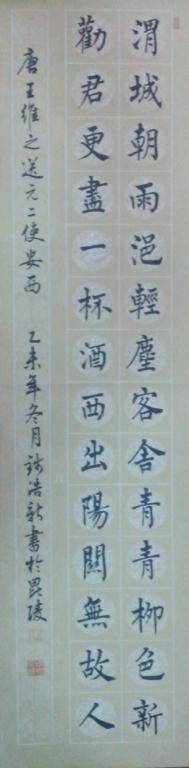 渭城朝雨浥輕塵客舍青青柳色新
勸君更盡一杯酒西出陽關無故人
唐王維之送元二使安西 乙未年冬月 浩新書於毘陵